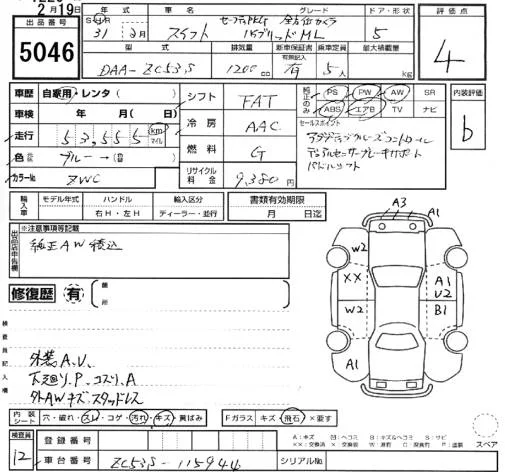 2月19日
出品番号 5046
年式 車名 グレード ドア・形状 評価点
31 2月 スイフト セーフティPKG 全方位カメラ ハイブリッドML 5 4
型式 排気量 新車保証書 有無記入 乗車定員 最大積載量
DAA-ZC53S 1200cc 有 5人 kg
車歴 自家用・レンタ ( ) シフト FAT 純正品のみ PS PW AW SR 内装評価
車検 年 月( 日) 冷房 AAC ABS エアB TV ナビ b
走行 53,555 km マイル セールスポイント
色 ブルー→ 燃料 G アダプティブクルーズコントロール
カラーNo. ZWC リサイクル料金 9,380円 デュアルセンサーブレーキサポート
パドルシフト
輸入車 モデル年式 ハンドル 輸入区分 書類有効期限
右H・左H ディーラー・並行 月 日迄
出品店申告欄 ※注意事項等記載
純正AW積込
修復歴 有 箇所
A3 A1
W2
XX A1
U2
W2 B1
A1
検査員記入欄
外装A、U、
下廻リS、P、コスリ、A
外AWキズ、スタッドレス
内装シート 穴・破れ・スレ・コゲ・汚れ・キズ・黄ばみ Fガラス キズ・飛石・×要す
A:キズ U:ヘコミ B:キズ&ヘコミ S:サビ
スペア
検査員 12 登録番号
車台番号 ZC53S-115944 シリアルNo.